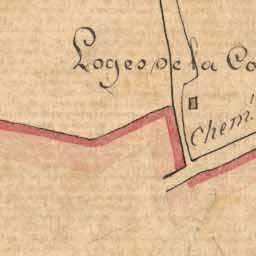 Loges de la Co
Chem.